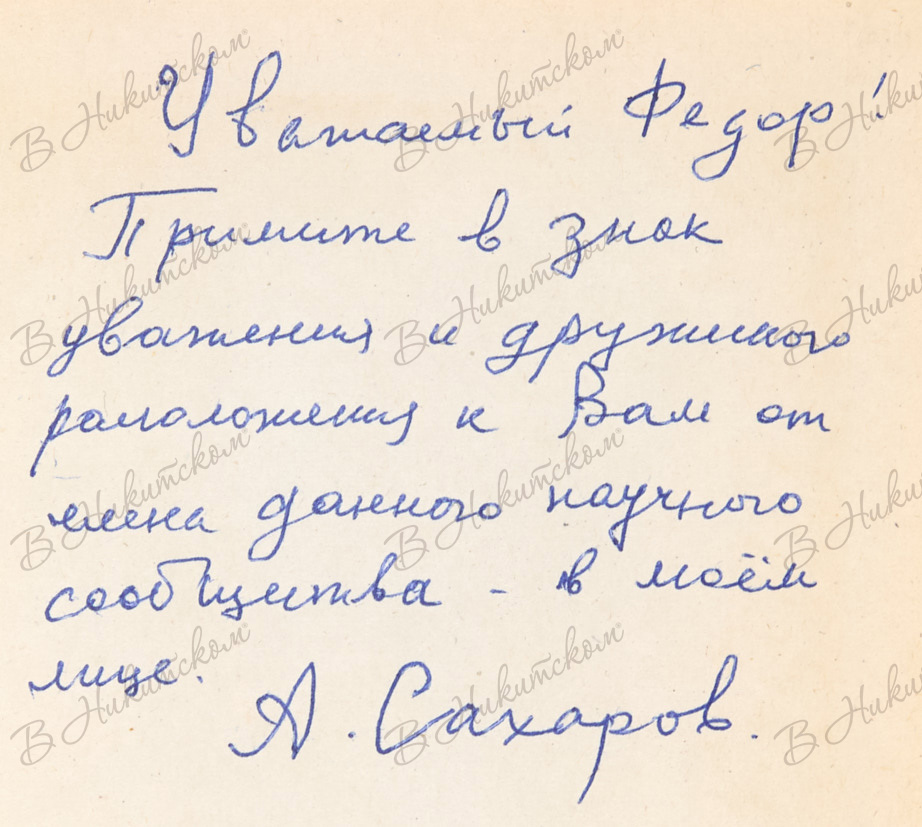 Уважаемый Федор!
Примите в знак
уважения и дружеского
расположения к Вам от
члена данного научного
сообщества - в моём
лице.
А. Сахаров.
В Никитском